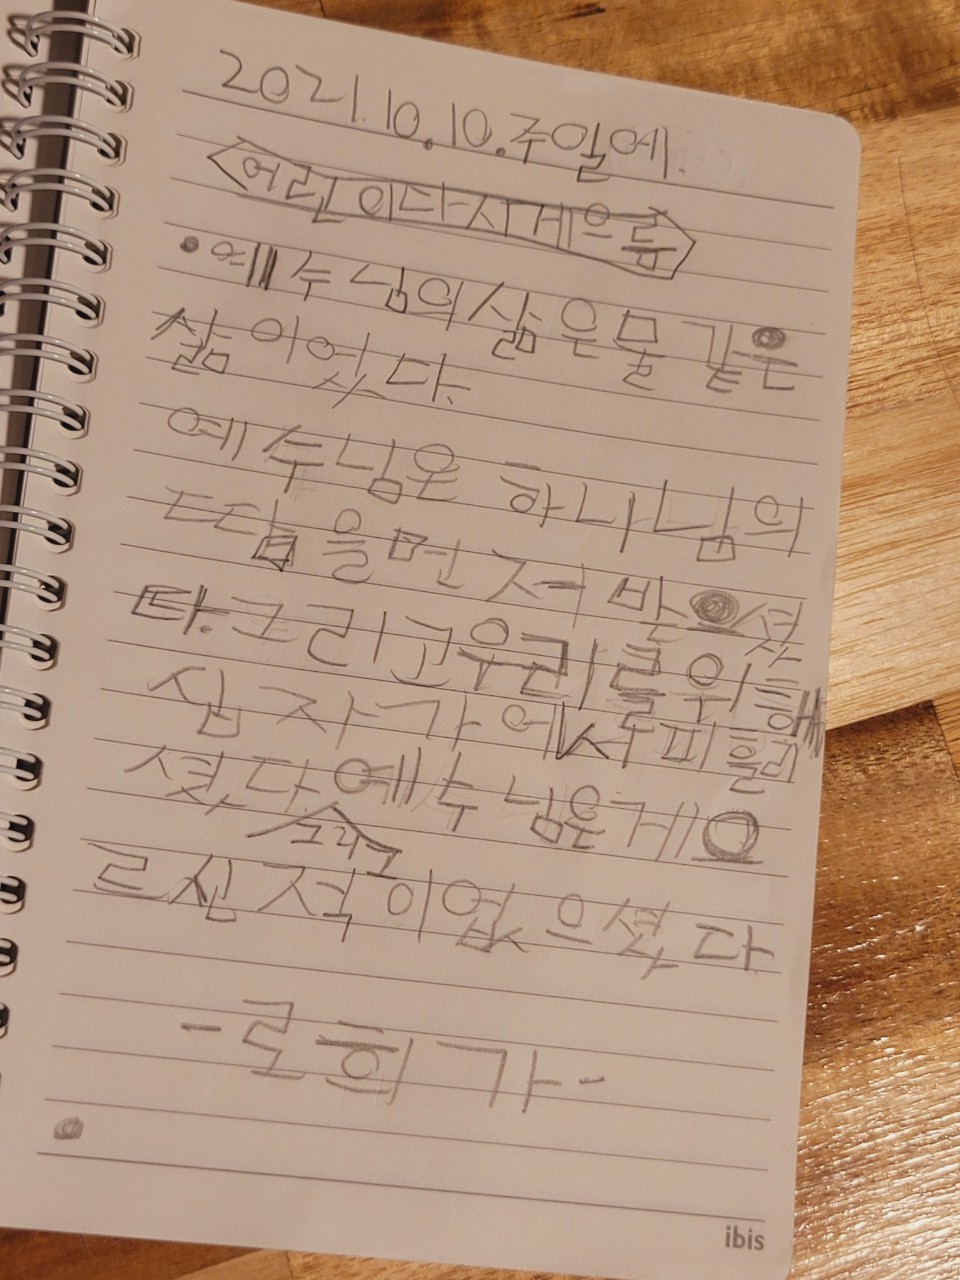 2021.10.10.주일에.
<어린이다시게으름>
•예수님의삶은물같은
삶이었다.
예수님은 하나님의
뜨담을먼저받으셧
다.그리고우리를위해
십자가에서피흘리
셨다.예수님은게으
그리고
르신적이없으셨다
-로희가-
ibis